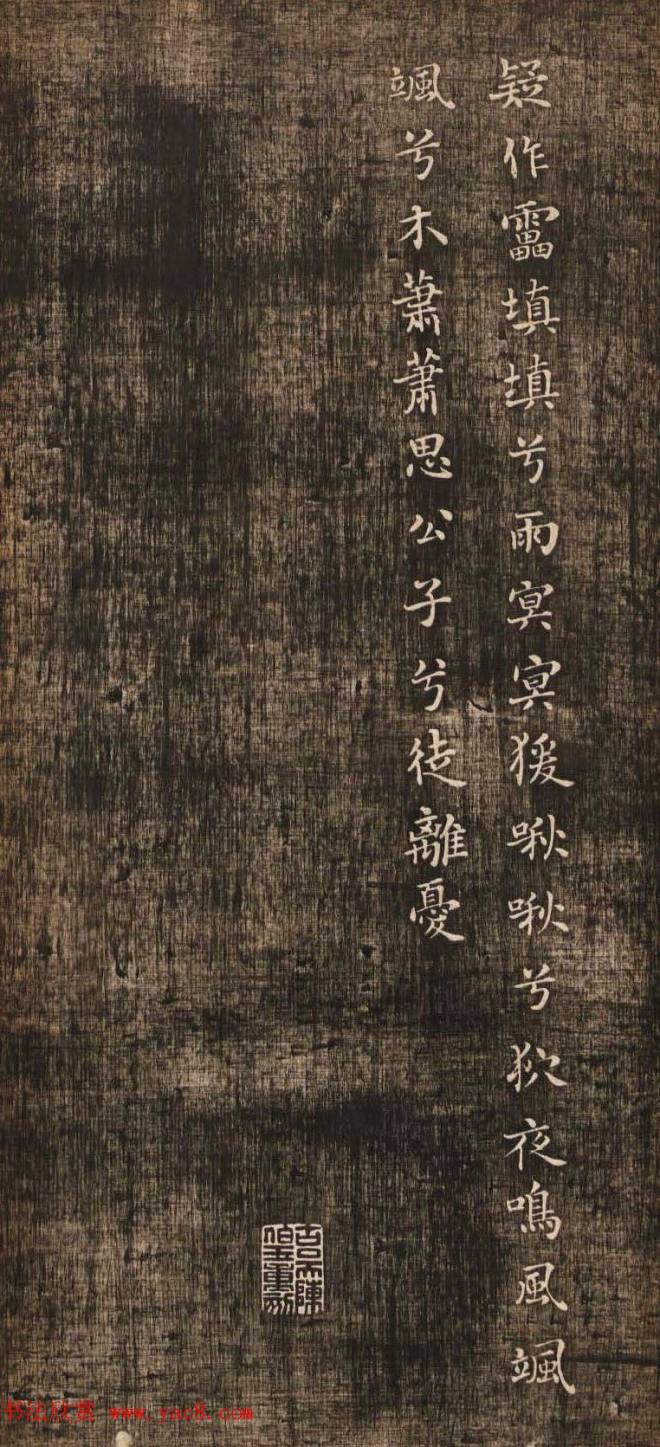 疑作靁填填兮雨冥冥猨啾啾兮狖夜鳴風颯
颯兮木蕭蕭思公子兮徒離憂
书法欣赏 www.yac8.com